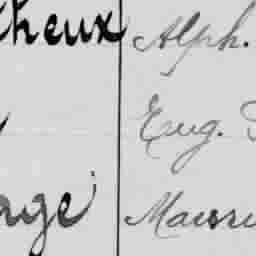 cheux Alph.
Eug.
age Mauri